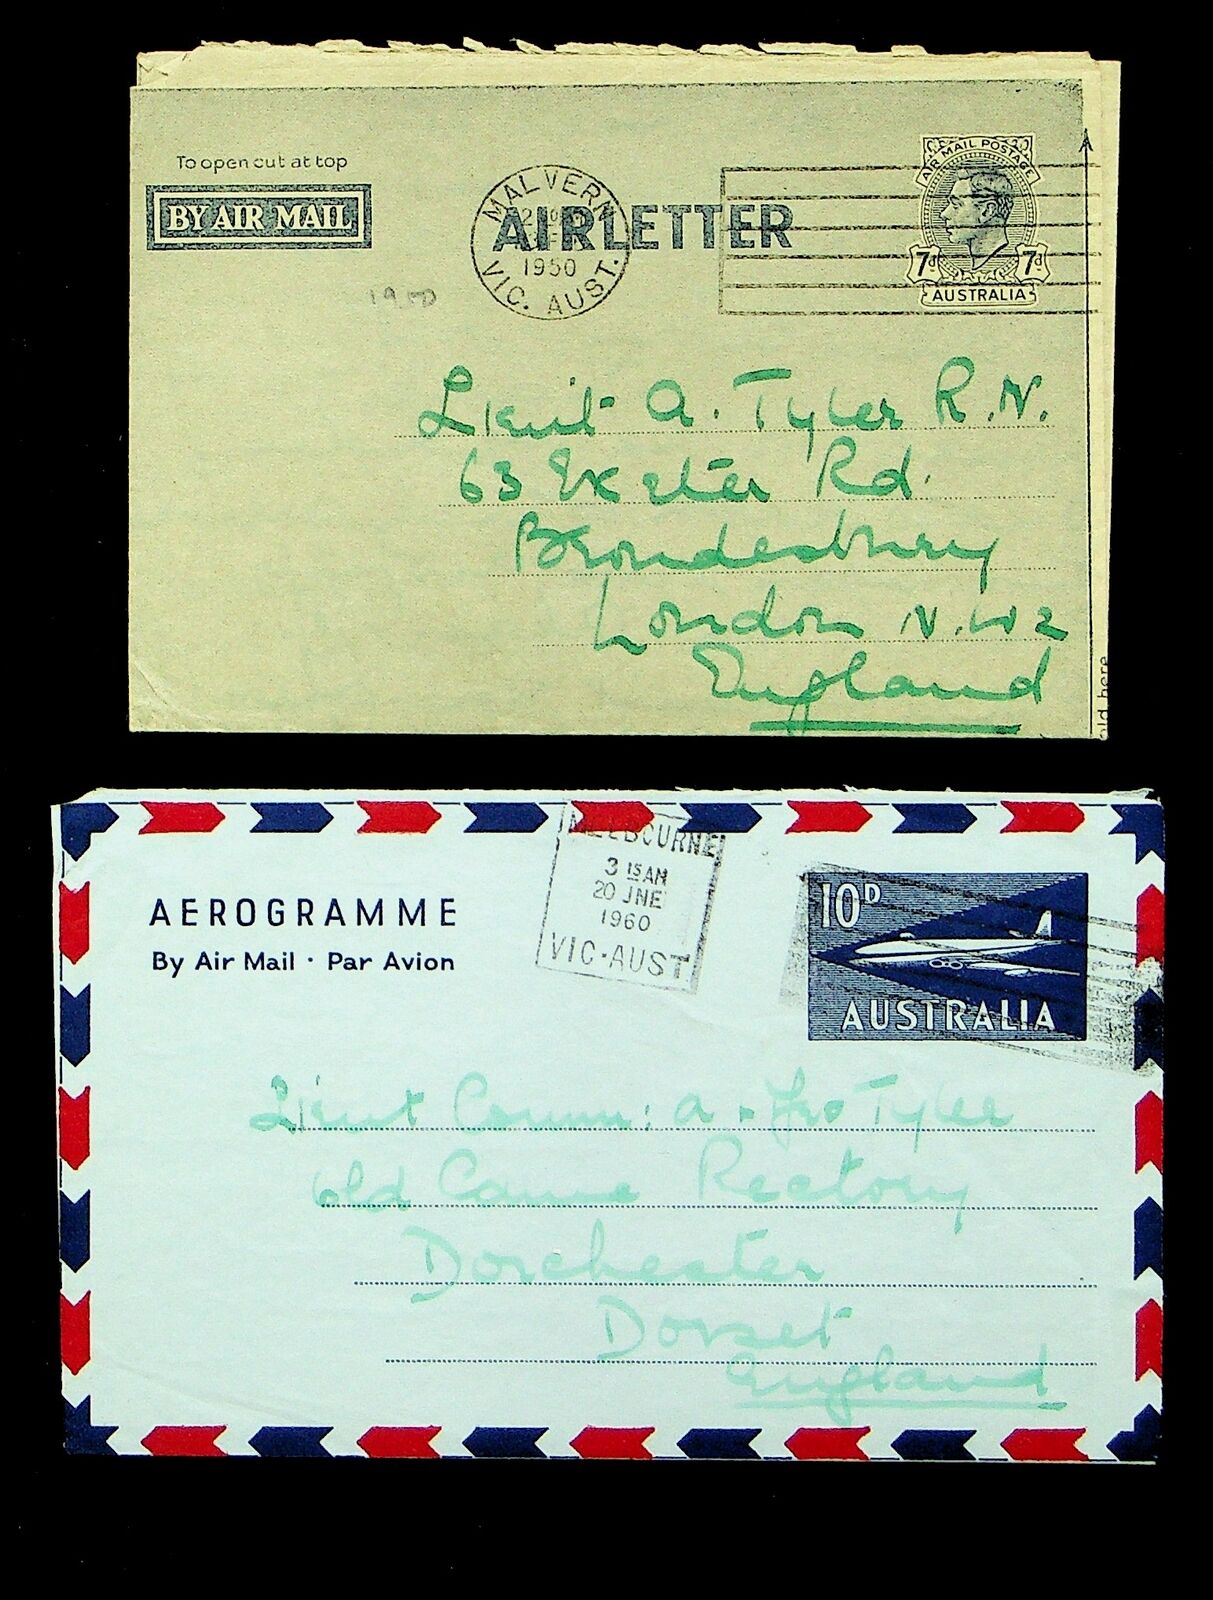 To open cut at top
BY AIR MAIL
AIR LETTER
MALVERN
1950
VIC. AUST.
AIR MAIL POSTAGE
7d 7d
AUSTRALIA
1950
Lieut A. Tyler R.N.
63 Exeter Rd.
Brondesbury
London N.W2
England
old here
AEROGRAMME
By Air Mail · Par Avion
MELBOURNE
3 15 AM
20 JNE
1960
VIC·AUST
10D
AUSTRALIA
Lieut Comm: A. Tyler
Old Came Rectory
Dorchester
Dorset
England